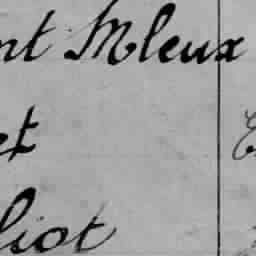 nt Mleux
et
liot